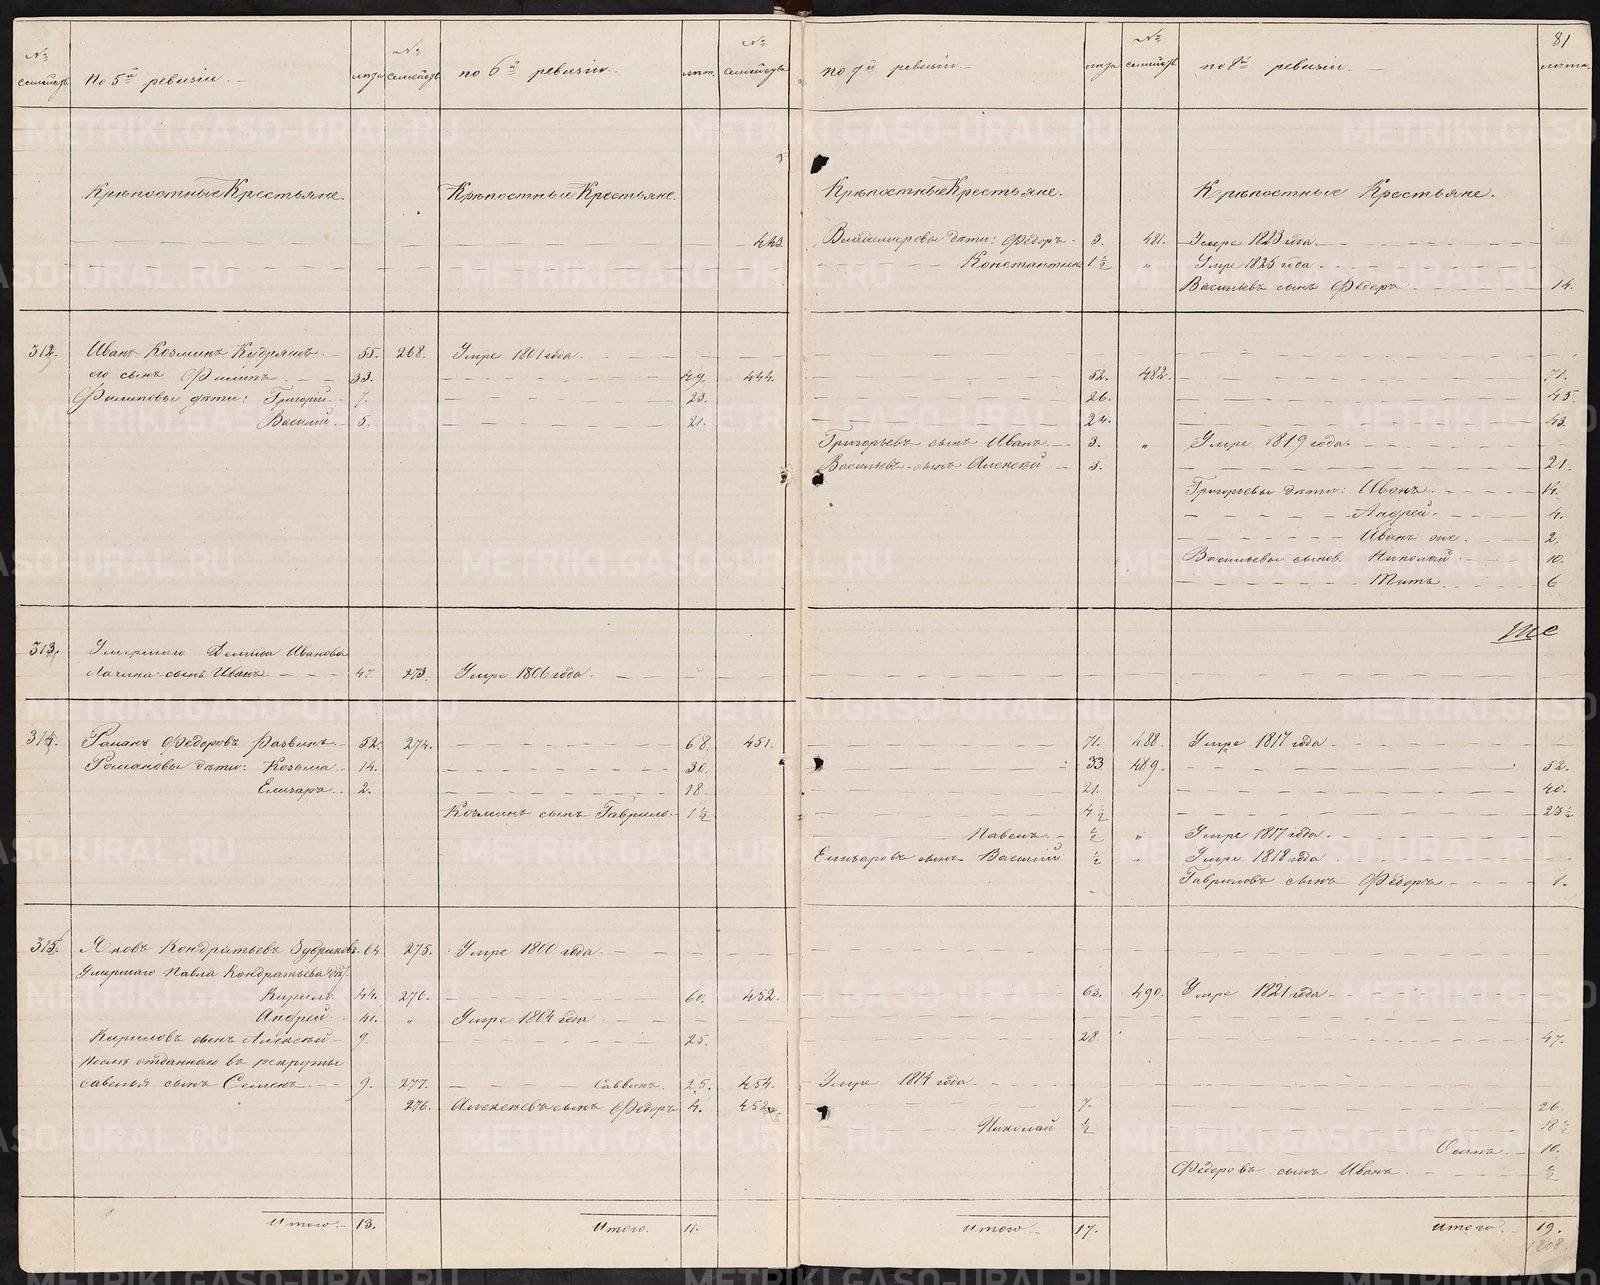 81
№ семействъ По 5й ревизіи. лѣта № семействъ по 6й ревизіи. лѣта. № семействъ по 7й ревизіи. лѣта № семействъ по 8й ревизіи. лѣта.
Крѣпостные Крестьяне. Крѣпостные Крестьяне. Крѣпостные Крестьяне. Крѣпостные Крестьяне.
443. Владимировы дѣти: Федоръ 3. 481. Умре 1823 года.
Константинъ 1 1/2 " Умре 1825 года
Васильевъ сынъ Федоръ 14.
312. Иванъ Козминъ Кудряшъ. 55. 268. Умре 1801 года.
его сынъ Филипъ 33. 49. 444. 52. 482. 71.
Филиповы дѣти: Григорій 7. 23. 26. 45.
Василій 5. 21. 24. 43.
Григорьевъ сынъ Иванъ 3. " Умре 1819 года.
Васильевъ сынъ Алексѣй 3. 21.
Григорьевы дѣти: Иванъ. 14.
Андрей. 4.
Иванъ же. 2.
Васильевы сынов. Николай 10.
Титъ. 6
313. Умершаго Демида Иванова
Лачина сынъ Иванъ 47. 273. Умре 1806 года.
314. Романъ Федоровъ Развинъ 52. 274. 68. 451. 71. 488. Умре 1817 года
Романовы дѣти: Козьма 14. 30. 33. 489. 52.
Елизаръ. 2. 18. 21. 40.
Козминъ сынъ Гаврило 1 1/2 4 1/2 23 1/2
Павелъ. 1/2 " Умре 1817 года.
Елизаровъ сынъ Василій 1/2 " Умре 1818 года
Гавриловъ сынъ Федоръ 1.
315. Яковъ Кондратьевъ Зубриковъ. 64 275. Умре 1800 года.
Умершаго Павла Кондратьева дѣт.
Кирило 44. 276. 60. 452. 63. 490. Умре 1821 года
Андрей 41. " Умре 1804 года
Кириловъ сынъ Алексѣй 9. 25. 28. 47.
послѣ отданнаго въ рекруты
савелья сынъ Семенъ. 9. 277. Саввинъ. 25. 454. Умре 1814 года.
276. Алексѣевъ сынъ Федоръ 4. 452 7. 26.
Николай 1/2 18 1/2
Осипъ. 10.
Федоровъ сынъ Иванъ 1/2
Итого. 13. Итого. 11. Итого 17. Итого. 19.
1208.
METRIKI.GASO-URAL.RU